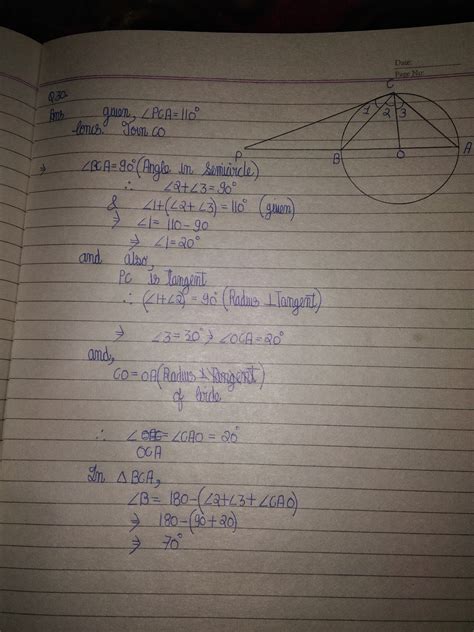 Date:
Page No:
Q30.
Ans given, ∠PCA=110°
Join CO
C
1 2 3
P B O A
⇒ ∠BCA=90° (Angle in semicircle)
∴ ∠2+∠3=90°
& ∠1+(∠2+∠3)=110° (given)
⇒ ∠1=110-90
⇒ ∠1=20°
and also,
PC is tangent
∴ (∠1+∠2)=90° (Radius ⊥ Tangent)
⇒ ∠3=30° ⇒ ∠OCA=20°
and,
CO=OA (Radius
of
∴ ∠ = ∠CAO = 20°
OCA
In △BCA,
∠B= 180-(∠2+∠3+∠CAO)
⇒ 180-(90+20)
⇒ 70°